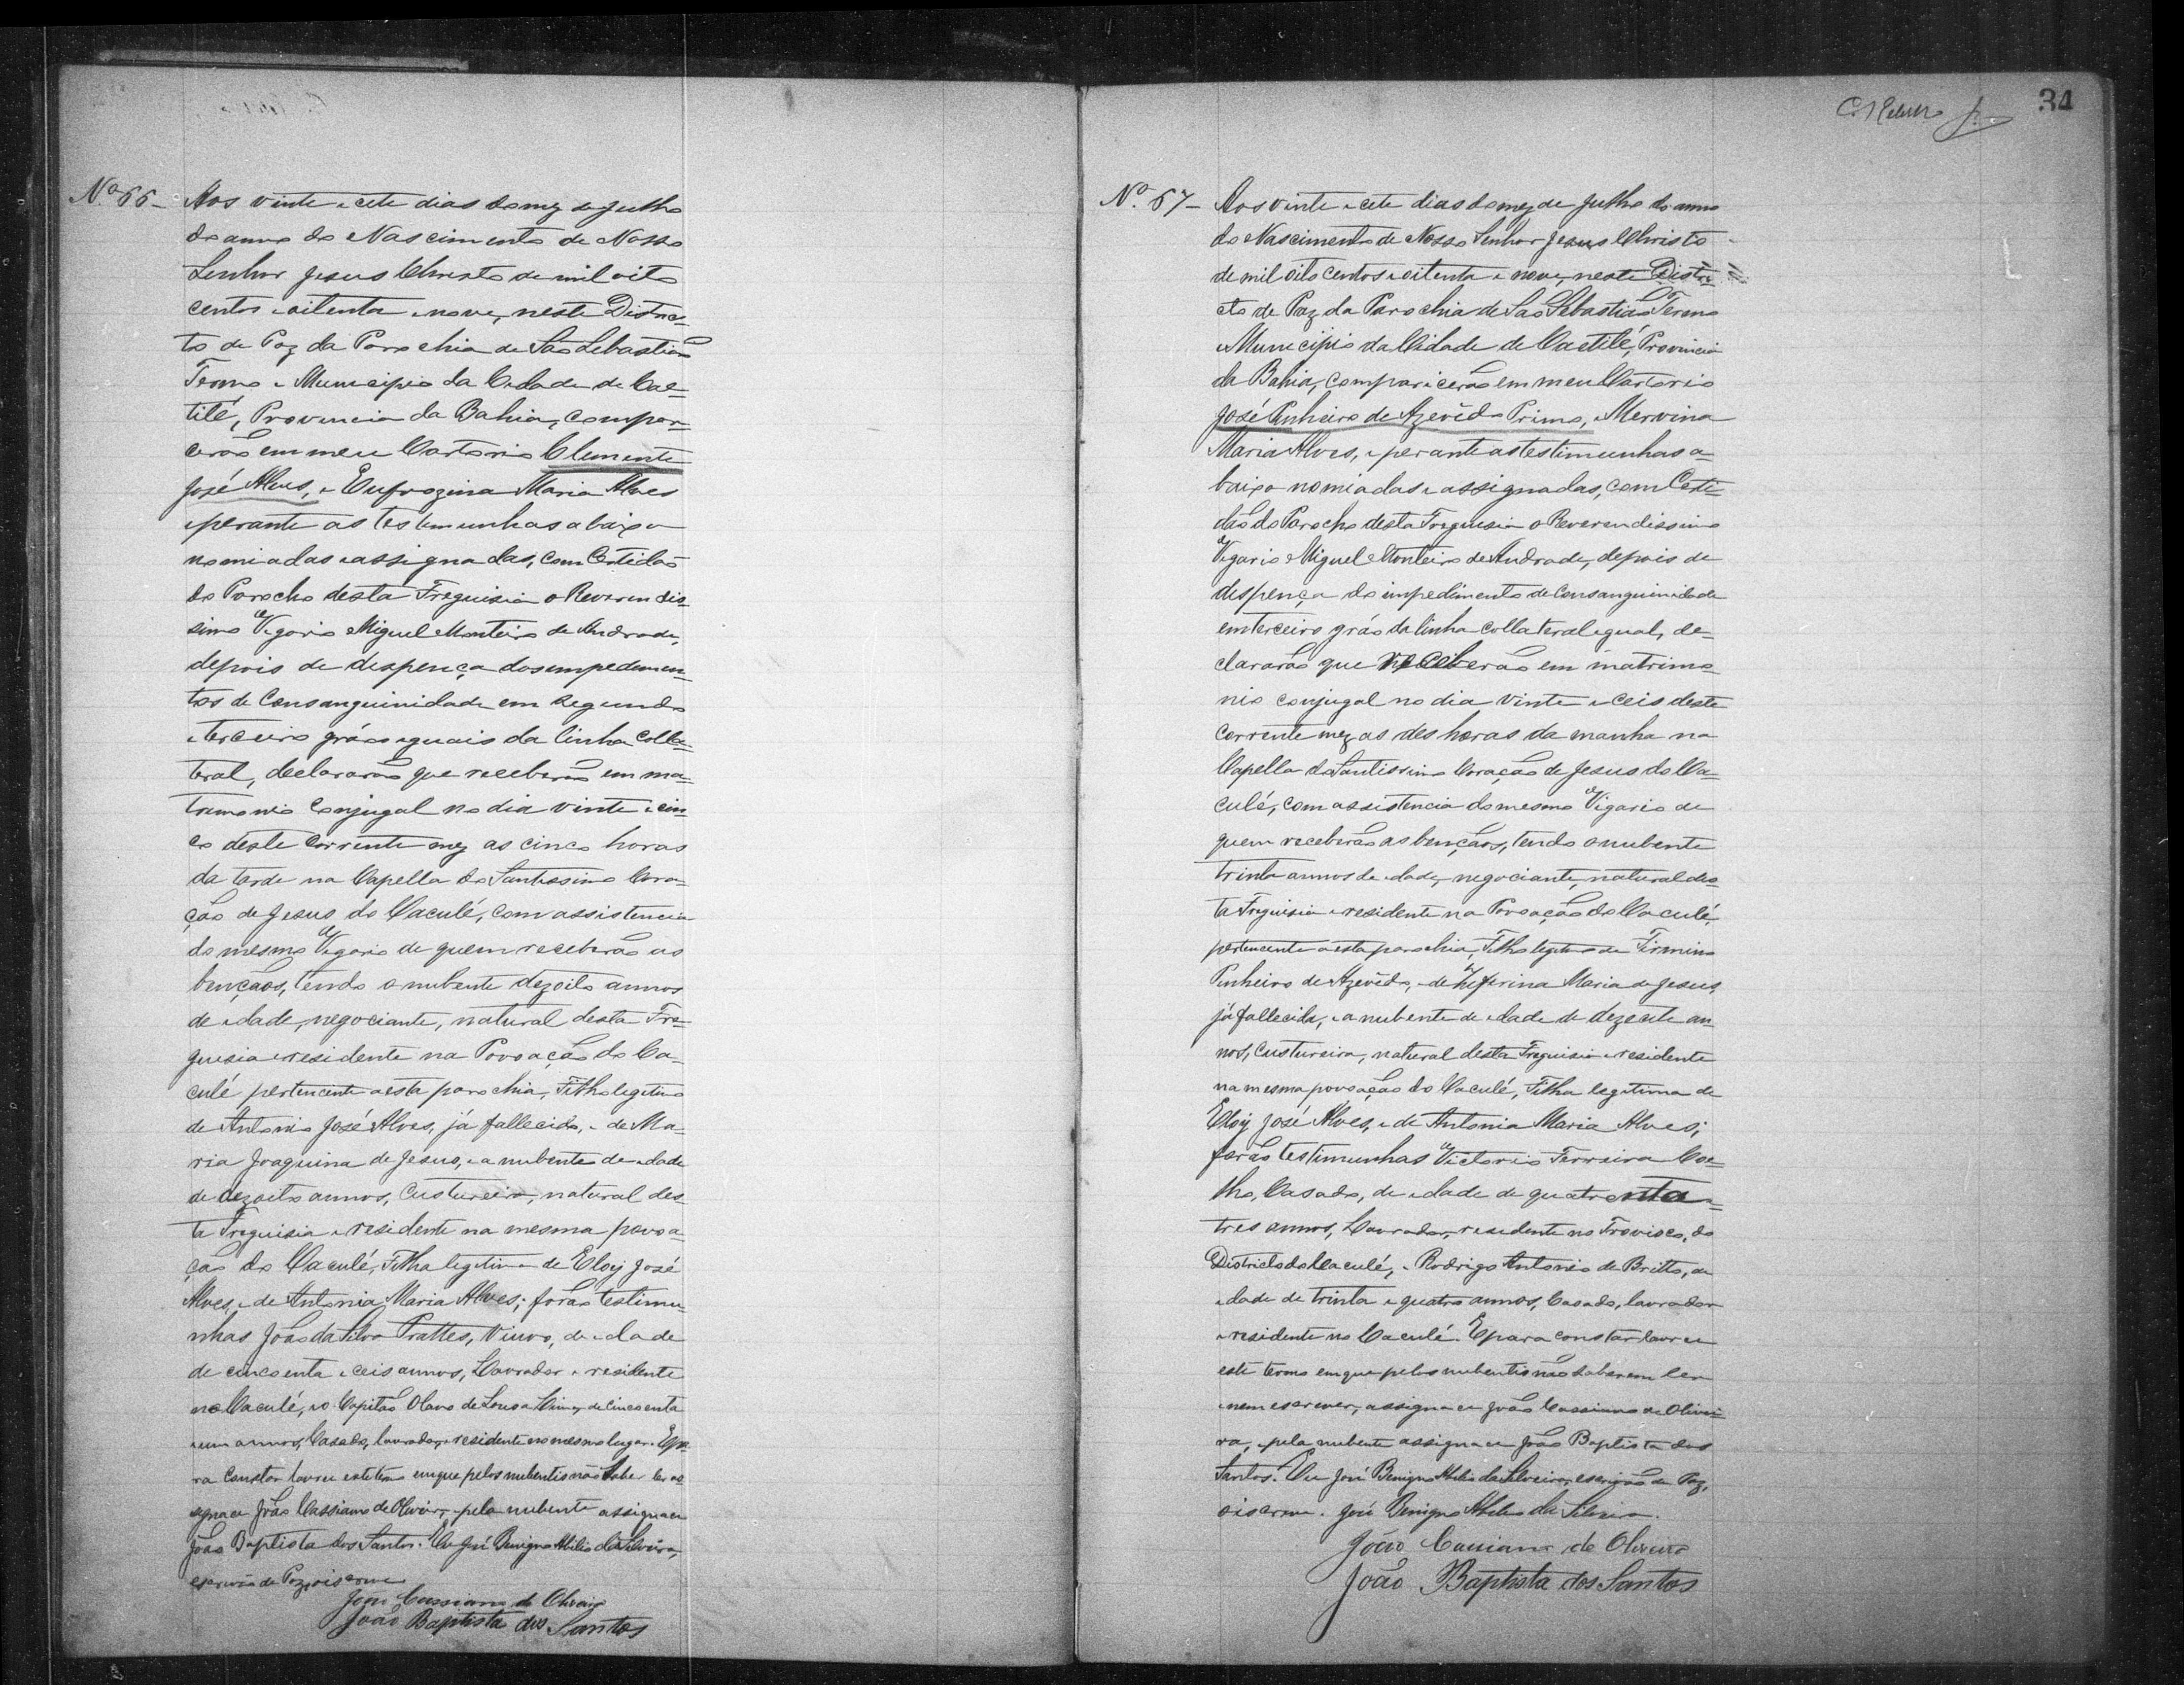 Nº 66 - Aos vinte e cete dias do mez de Julho
do anno do Nascimento de Nosso
Senhor Jesus Christo de mil oito
centos e oitenta e nove, neste Distric-
to de Paz da Parochia de São Sebastião
Termo e Municipio da Cidade de Cae-
tité, Provincia da Bahia, compar-
cerão em meu Cartorio Clemente
José Alves, e Eufrozina Maria Alves
e perante as testimunhas abaixo
nomiadas e assignadas, com Certidão
do Parocho desta Freguisia o Reverendis-
simo Vigario Miguel Monteiro de Andrade,
depois de despença dos empedemen-
tos de Consanguinidade em Segundo
e terceiro gráos iguais da linha Colla-
teral, declararão que receberão em ma-
tremonio Conjugal no dia vinte e cin-
co deste Corrente mez as cinco horas
da tarde na Capella do Santissimo Cora-
ção de Jesus do Caculé, com assistencia
do mesmo Vigario de quem receberão as
bençãos, tendo o nubente dezoito annos
de edade, negociante, natural desta Fre-
guisia e residente na Povoação do Ca-
culé pertencente a esta parochia, Filho legitimo
de Antonio José Alves, já fallecido, e de Ma-
ria Joaquina de Jesus, e a nubente de edade
de dezoito annos, Custureira, natural des-
ta Freguisia e residente na mesma povoa-
ção do Caculé, Filha legitima de Eloy José
Alves, e de Antonia Maria Alves; forão testimu-
nhas João da Silva Prattes, Viuvo, de edade
de cincoenta e ceis annos, Lavrador e residente
no Caculé, e o Capitão Olavo de Souza Lima, de Cincoenta
e um annos, Casado, lavrador, e residente no mesmo lugar. E pa-
ra Constar lavrei este termo em que pelos nubentis não Saber ler as-
signa eu João Cassiano de Oliveira, e pela nubente assigna eu
João Baptista dos Santos. Eu José Benigno Abilio da Silveira,
escrivão de Paz, o iscrevi
João Cassiano de Oliveira
João Baptista dos Santos
34
Nº 67 - Aos vinte e cete dias do mez de Julho do anno
do Nascimento de Nosso Senhor Jesus Christo
de mil oito centos e oitenta e nove, neste Distri-
cto de Paz da Parochia de São Sebastião Termo
e Municipio da Cidade de Caetité, Provincia
da Bahia, comparicerão em meu Cartorio
José Pinheiro de Azevêdo Primo, e Mervina
Maria Alves, e perante as testimunhas a-
baixo nomiadas e assignadas, com Certi-
dão do Parocho desta Freguisia o Reverendissimo
Vigario Miguel Monteiro de Andrade, depois de
despença do impedimento de Consanguinidade
em terceiro gráo da linha Collateral egual, de-
clararão que receberão em matrimo-
nio conjugal no dia vinte e ceis deste
Corrente mez as des horas da manha na
Capella do Santissimo Coração de Jesus do Ca-
culé, com assistencia do mesmo Vigario de
quem receberão as bençãos, tendo o nubente
trinta annos de edade, negociante, natural des-
ta Freguisia e residente na Povoação do Caculé,
pertencente a esta parochia, Filho legitimo de Firmino
Pinheiro de Azevêdo, e de Zeferina Maria de Jesus,
já fallecida, e a nubente de edade de dezecete an-
nos, Custureira, natural desta Freguisia e residente
na mesma povoação do Caculé, Filha legitima de
Eloy José Alves, e de Antonia Maria Alves;
forão testimunhas Victorio Ferreira Coe-
lho, Casado, de edade de quatrenta e
tres annos, Lavrador, residente no Trovisco, do
Districto do Caculé, e Rodrigo Antonio de Britto, de
edade de trinta e quatro annos, Casado, lavrador
e residente no Caculé. E para constar lavrei
este termo em que pelos nubentis não saberem ler
e nem escrever, assigna eu João Cassiano de Olivei-
ra, e pela nubente assigna eu João Baptista dos
Santos. Eu José Benigno Abilio da Silveira, escrivão de Paz,
o iscrevi. José Benigno Abilio da Silveira.
João Cassiano de Oliveira
João Baptista dos Santos